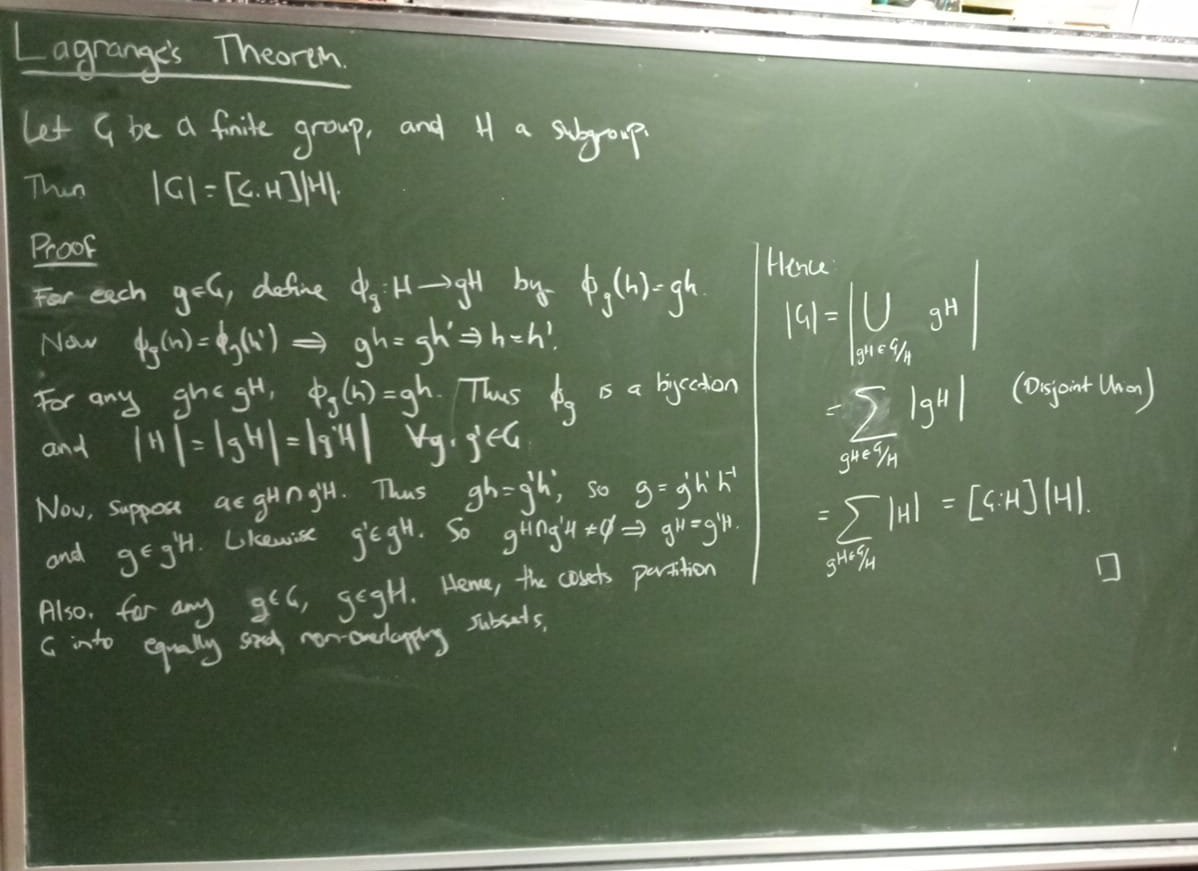 Lagrange's Theorem.
Let G be a finite group, and H a subgroup.
Then |G| = [G:H]|H|.
Proof
For each g∈G, define ϕ_g: H→gH by ϕ_g(h)=gh.
Now ϕ_g(h)=ϕ_g(h') ⇒ gh=gh' ⇒ h=h'.
For any gh∈gH, ϕ_g(h)=gh. Thus ϕ_g is a bijection
and |H|=|gH|=|g'H| ∀g,g'∈G.
Now, suppose a∈gH∩g'H. Thus gh=g'h', so g=g'h'h⁻¹
and g∈g'H. Likewise g'∈gH. So gH∩g'H≠∅ ⇒ gH=g'H.
Also, for any g∈G, g∈gH. Hence, the cosets partition
G into equally sized, non-overlapping subsets,
Hence:
|G| = |⋃_{gH∈G/H} gH|
= ∑_{gH∈G/H} |gH| (Disjoint Union)
= ∑_{gH∈G/H} |H| = [G:H]|H|.
□